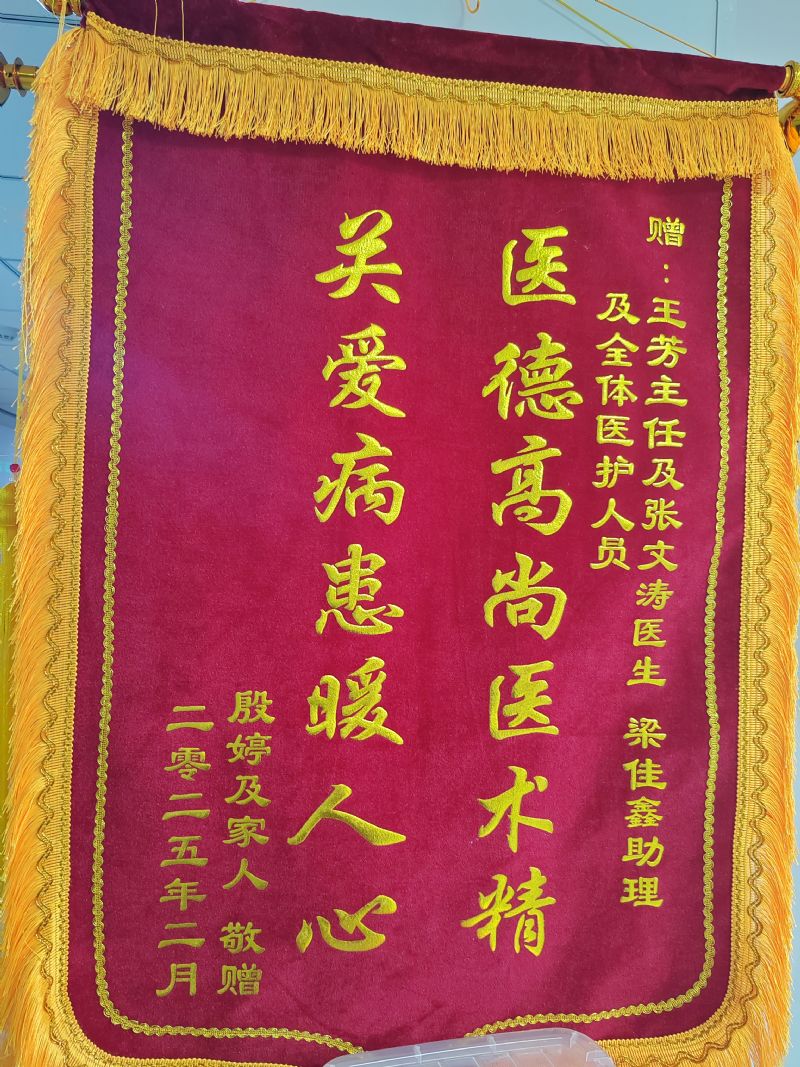 赠：王芳主任及张文涛医生 梁佳鑫助理
及全体医护人员
医德高尚医术精
关爱病患暖人心
殷婷及家人 敬赠
二零二五年二月